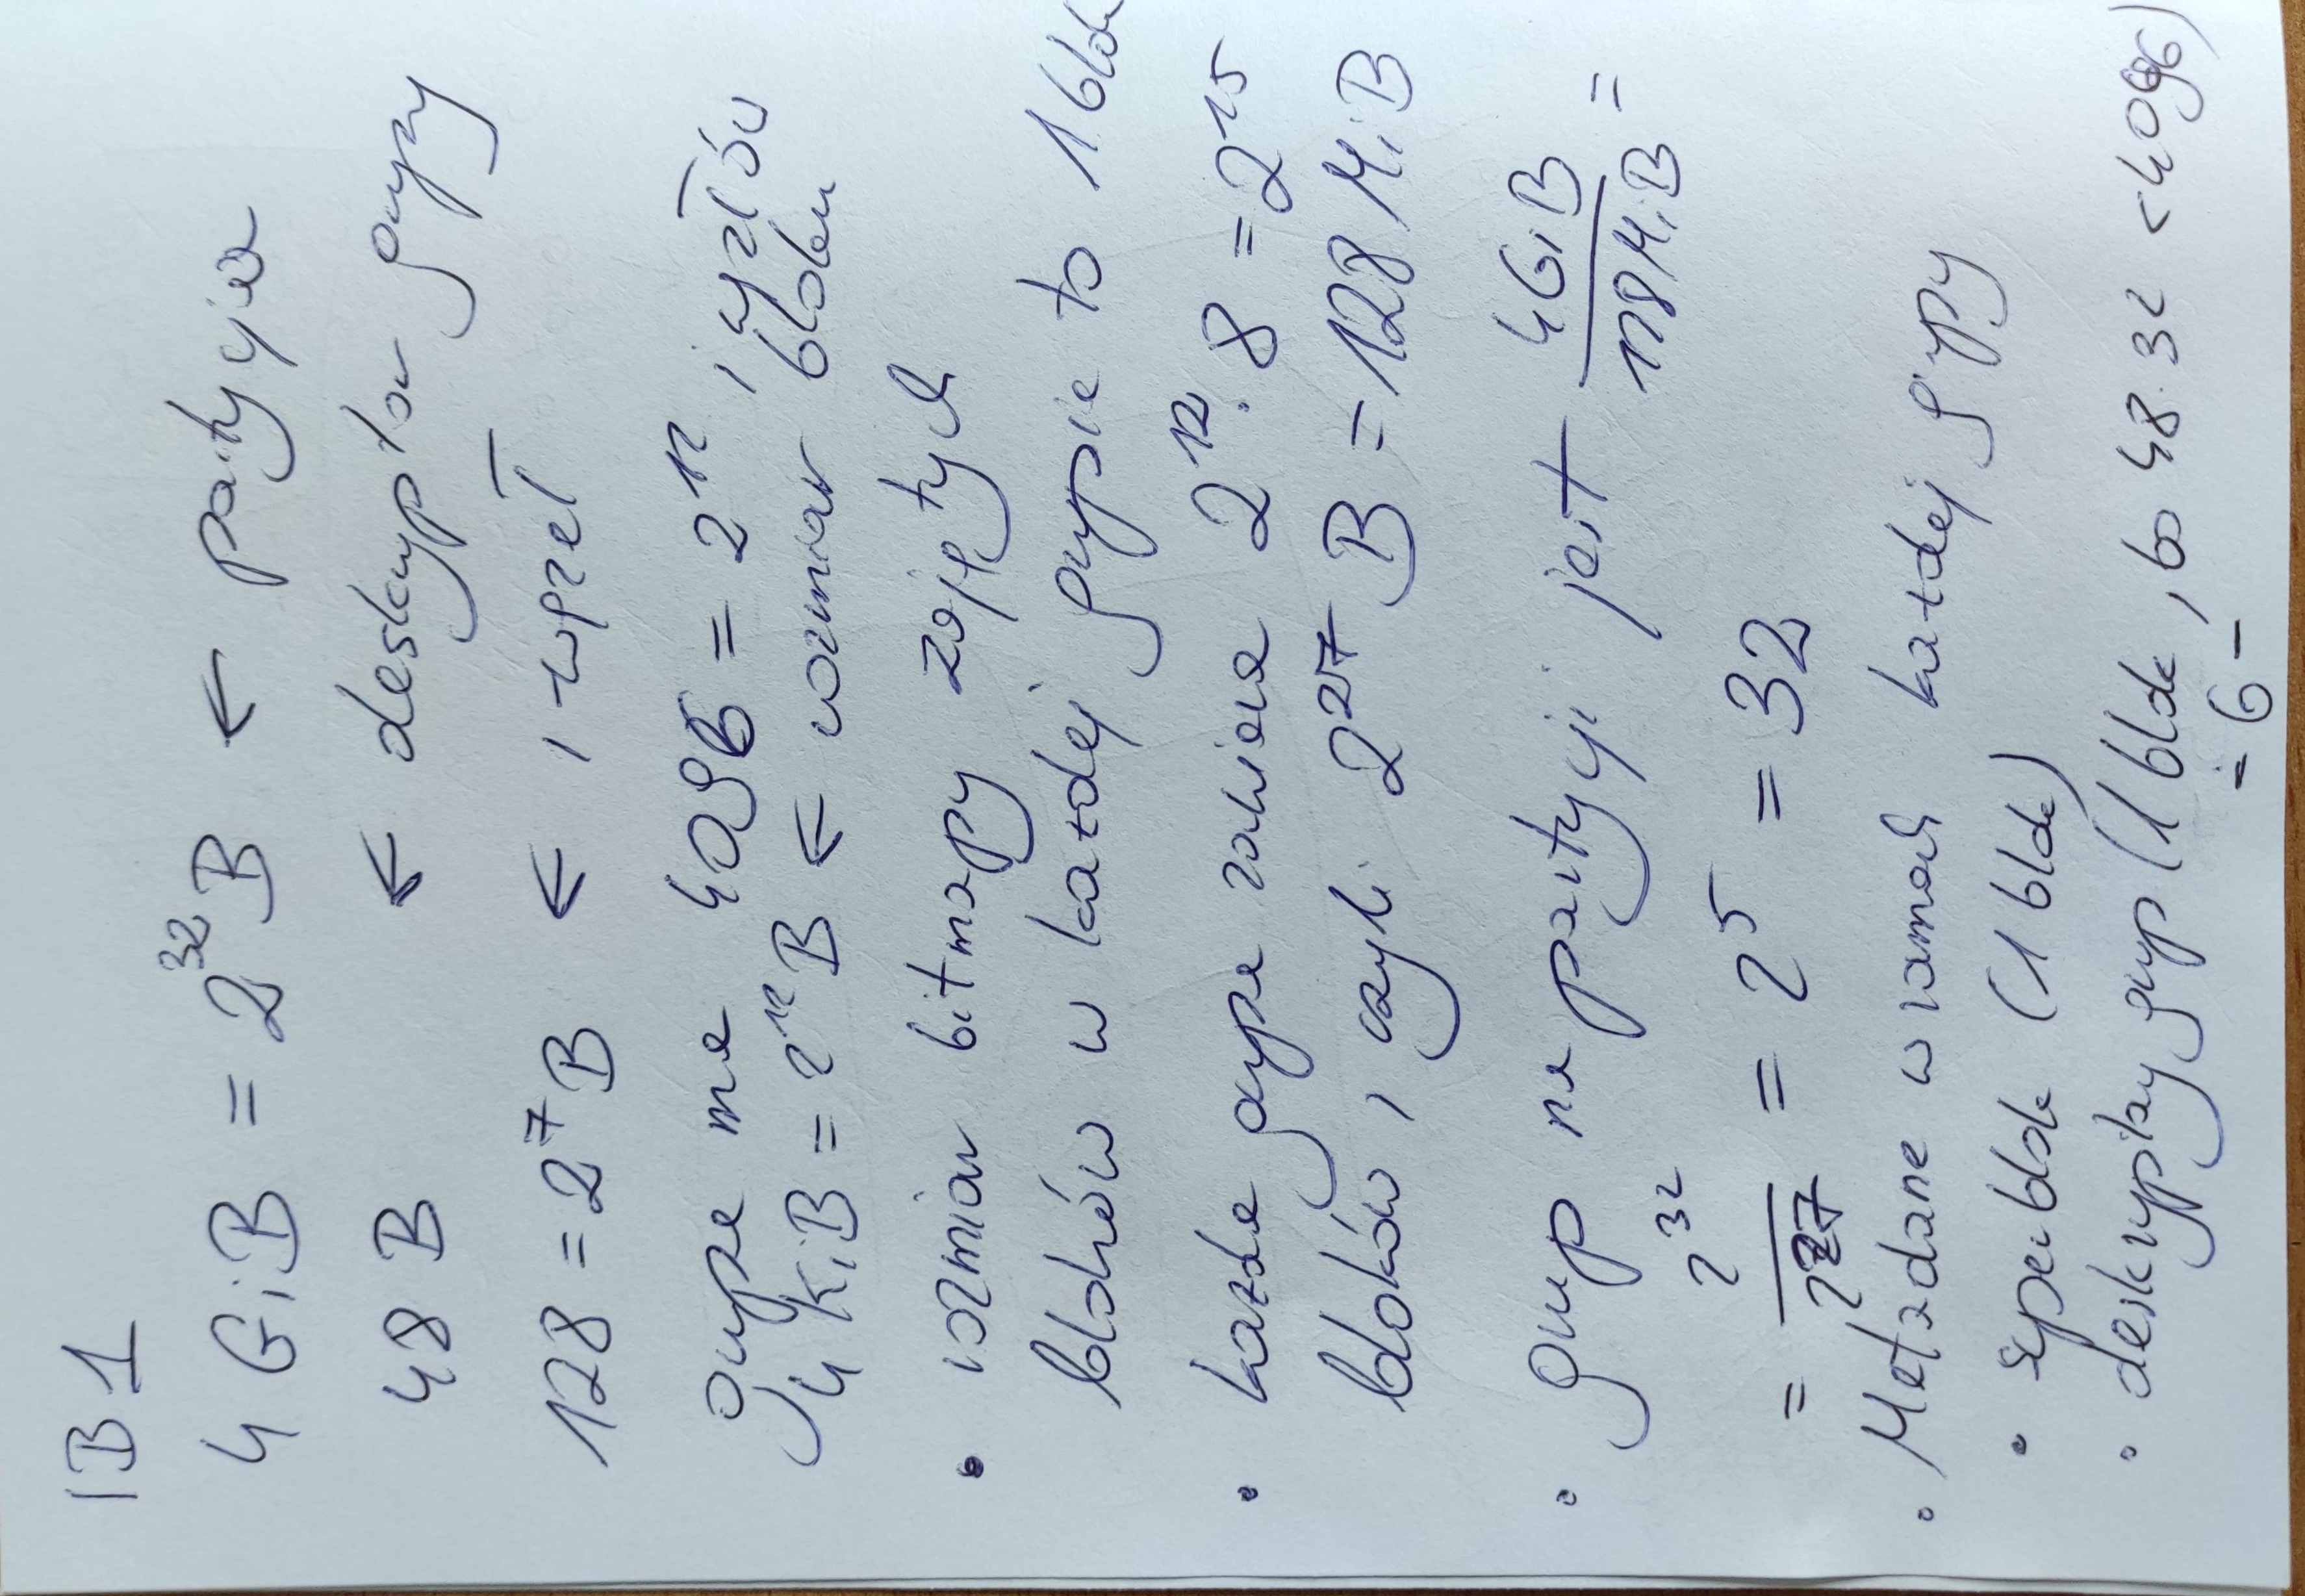 1B1
4 GiB = 2^32 B ← partycja
48 B ← deskryptor grupy
128 = 2^7 B ← i-węzeł
grupa ma 4096 = 2^12 i-węzłów
4 KiB = 2^12 B ← rozmiar bloku
• rozmiar bitmapy zajętych
bloków w każdej grupie to 1 blok
• każda grupa zawiera 2^12 · 8 = 2^15
bloków, czyli 2^27 B = 128 MiB
• grup na partycji jest 4GiB / 128MiB =
= 2^32 / 2^27 = 2^5 = 32
• Metadane w ramach każdej grupy
• superblok (1 blok)
• deskryptory grup (1 blok, bo 48·32 < 4096)
- 6 -